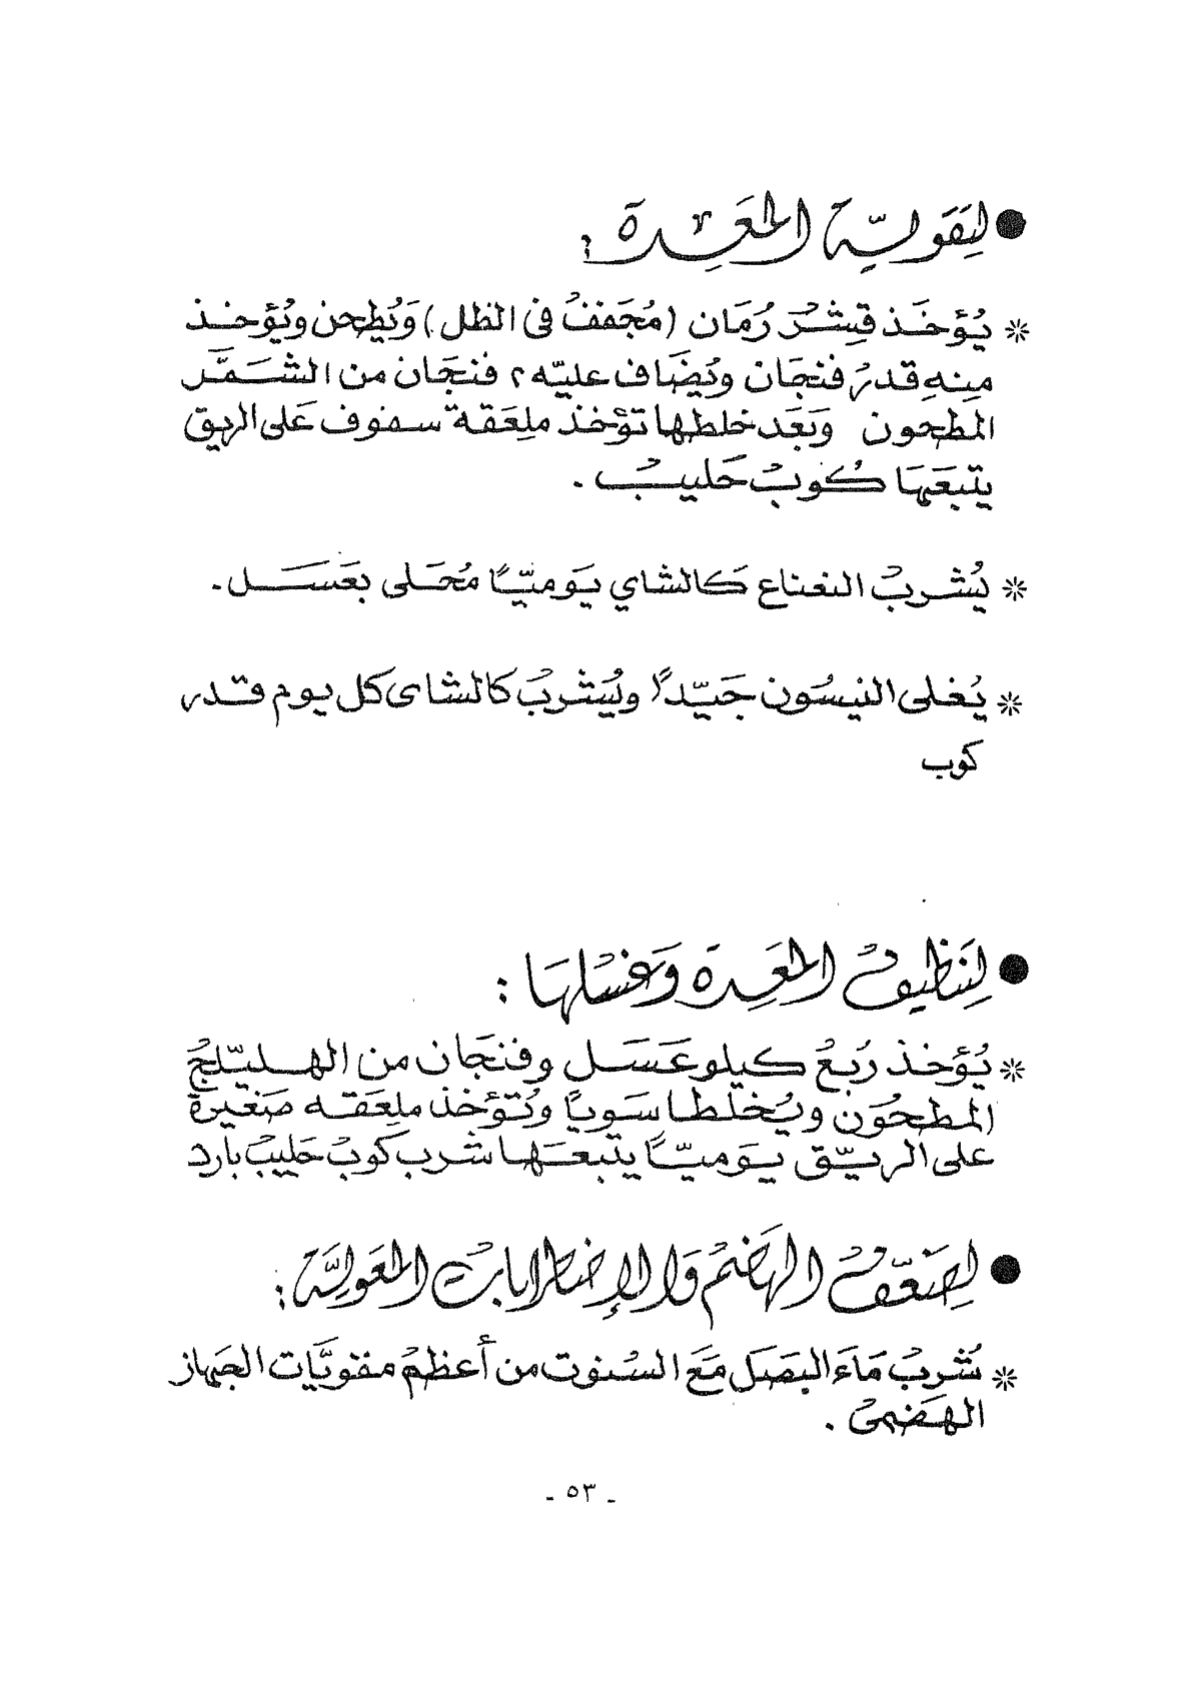 ● لِتَقَويَّة المَعِدة :
* يُؤخَذ قِشْر رُمَان (مُجَففُ فى الظل) وَيُطحن ويُؤخذ
مِنهِ قدرُ فنتجَان ويُضَاف عليّه ٢ فنتجَان من الشَمَّر
المطحون وَبَعَد خلطها تؤخذ ملِعَقة سفوف عَلى الريق
يتبعَهَا كُوبْ حَليبْ .
* يُشْربْ النعناع كَالشاي يَوميّاً مُحَلى بعَسَل .
* يُغلى النيسُون جَيّداً ويُشربْ كالشاى كل يوم قدر
كوب
● لِتَنظيفْ المَعِدة وَغسْلهَا :
* يُؤَخذ رُبعُ كيلو عَسَل وفنتجَان من الهليّلجُ
المطحُون ويُخلطا سَوياً وتُؤخذ ملِعَقه صَغيرة
على الريّق يَوميّاً يتبعَها شرب كوبْ حَليبْ بارد
● لِضَعّفْ الهَضمْ وَالإضطراباتْ المَعَويَّة :
* شربْ مَاءَ البَصَل مَعَ السُنوت من أعظمْ مقويَّات الجَهاز
الهَضمىْ .
- ٥٣ -